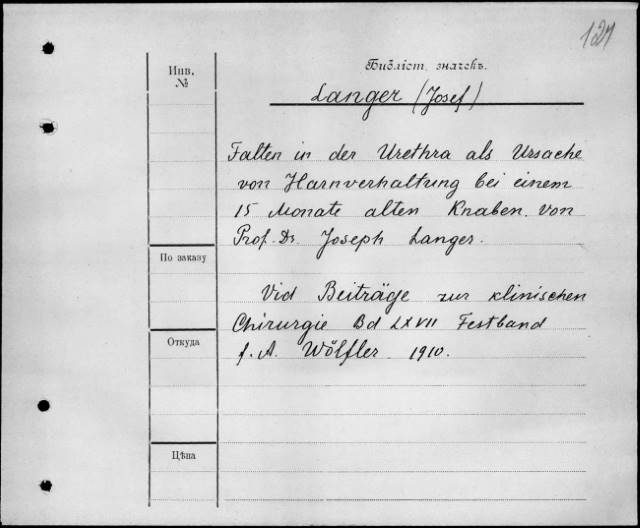 127
Инв.
№
Библіот. значекъ.
Langer (Josef)
Falten in der Urethra als Ursache
von Harnverhaltung bei einem
15 Monate alten Knaben. von
Prof. Dr. Joseph Langer.
По заказу
Vid Beiträge zur klinischen
Chirurgie Bd LXVII Festband
Откуда
f. A. Wölfler. 1910.
Цѣна